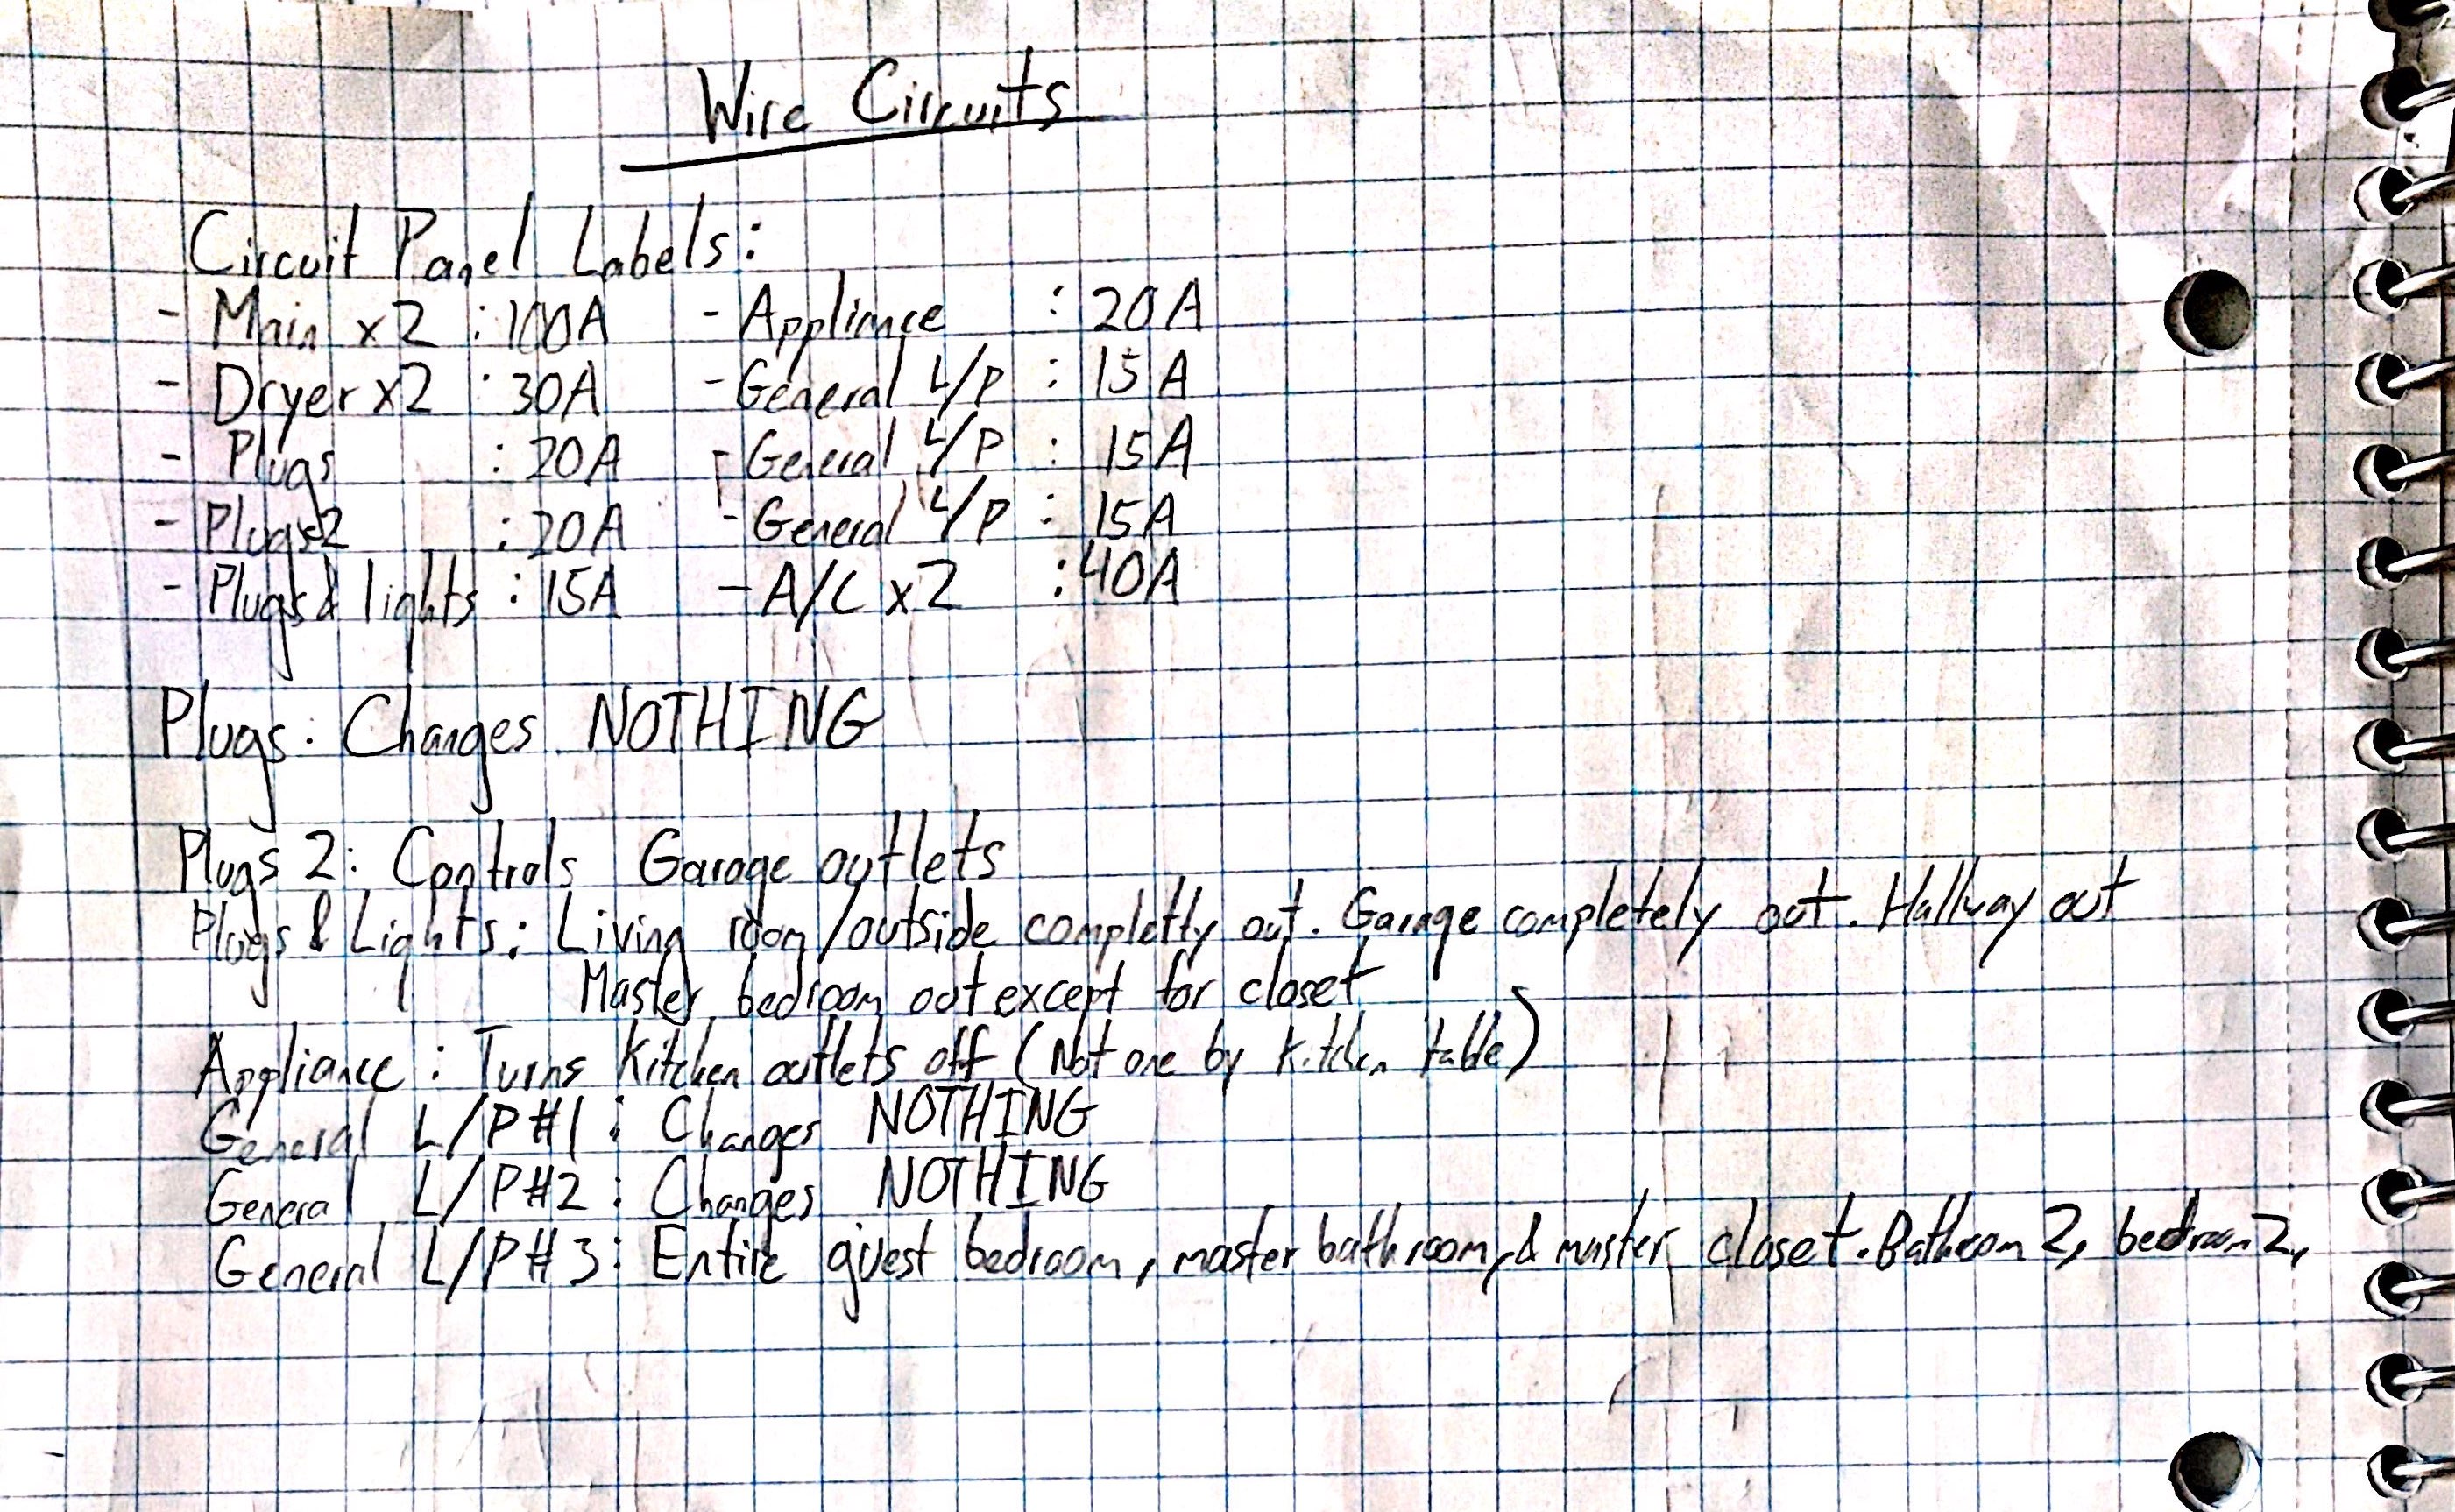 Wire Circuits
Circuit Panel Labels:
- Main x2 : 100A - Appliance : 20A
- Dryer x2 : 30A - General L/P : 15A
- Plugs : 20A - General L/P : 15A
- Plugs2 : 20A - General L/P : 15A
- Plugs & lights : 15A - A/C x2 : 40A
Plugs: Changes NOTHING
Plugs 2: Controls Garage outlets
Plugs & Lights: Living room/outside completly out. Garage completely out. Hallway out
Master bedroom out except for closet
Appliance : Turns Kitchen outlets off (Not one by kitchen table)
General L/P #1 : Changes NOTHING
General L/P #2 : Changes NOTHING
General L/P # 3 : Entire guest bedroom, master bathroom, & master closet. Bathroom 2, bedroom 2,